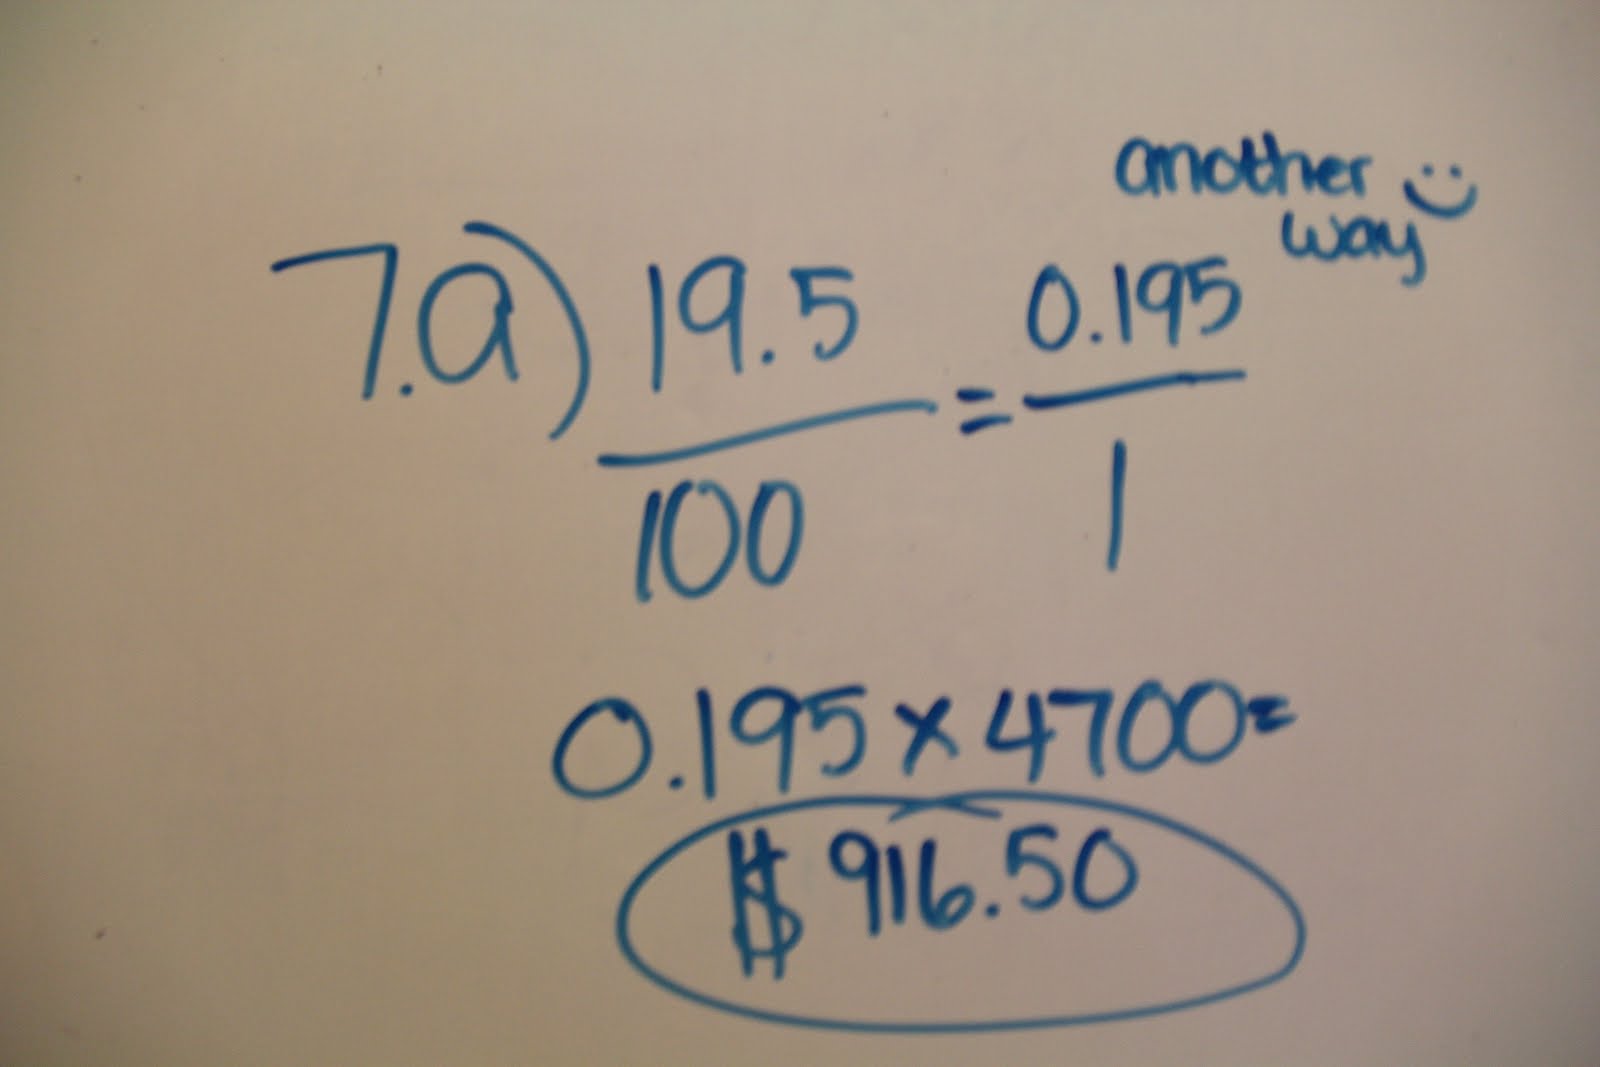 another
way
7.a) 19.5/100 = 0.195/1
0.195 x 4700=
$916.50